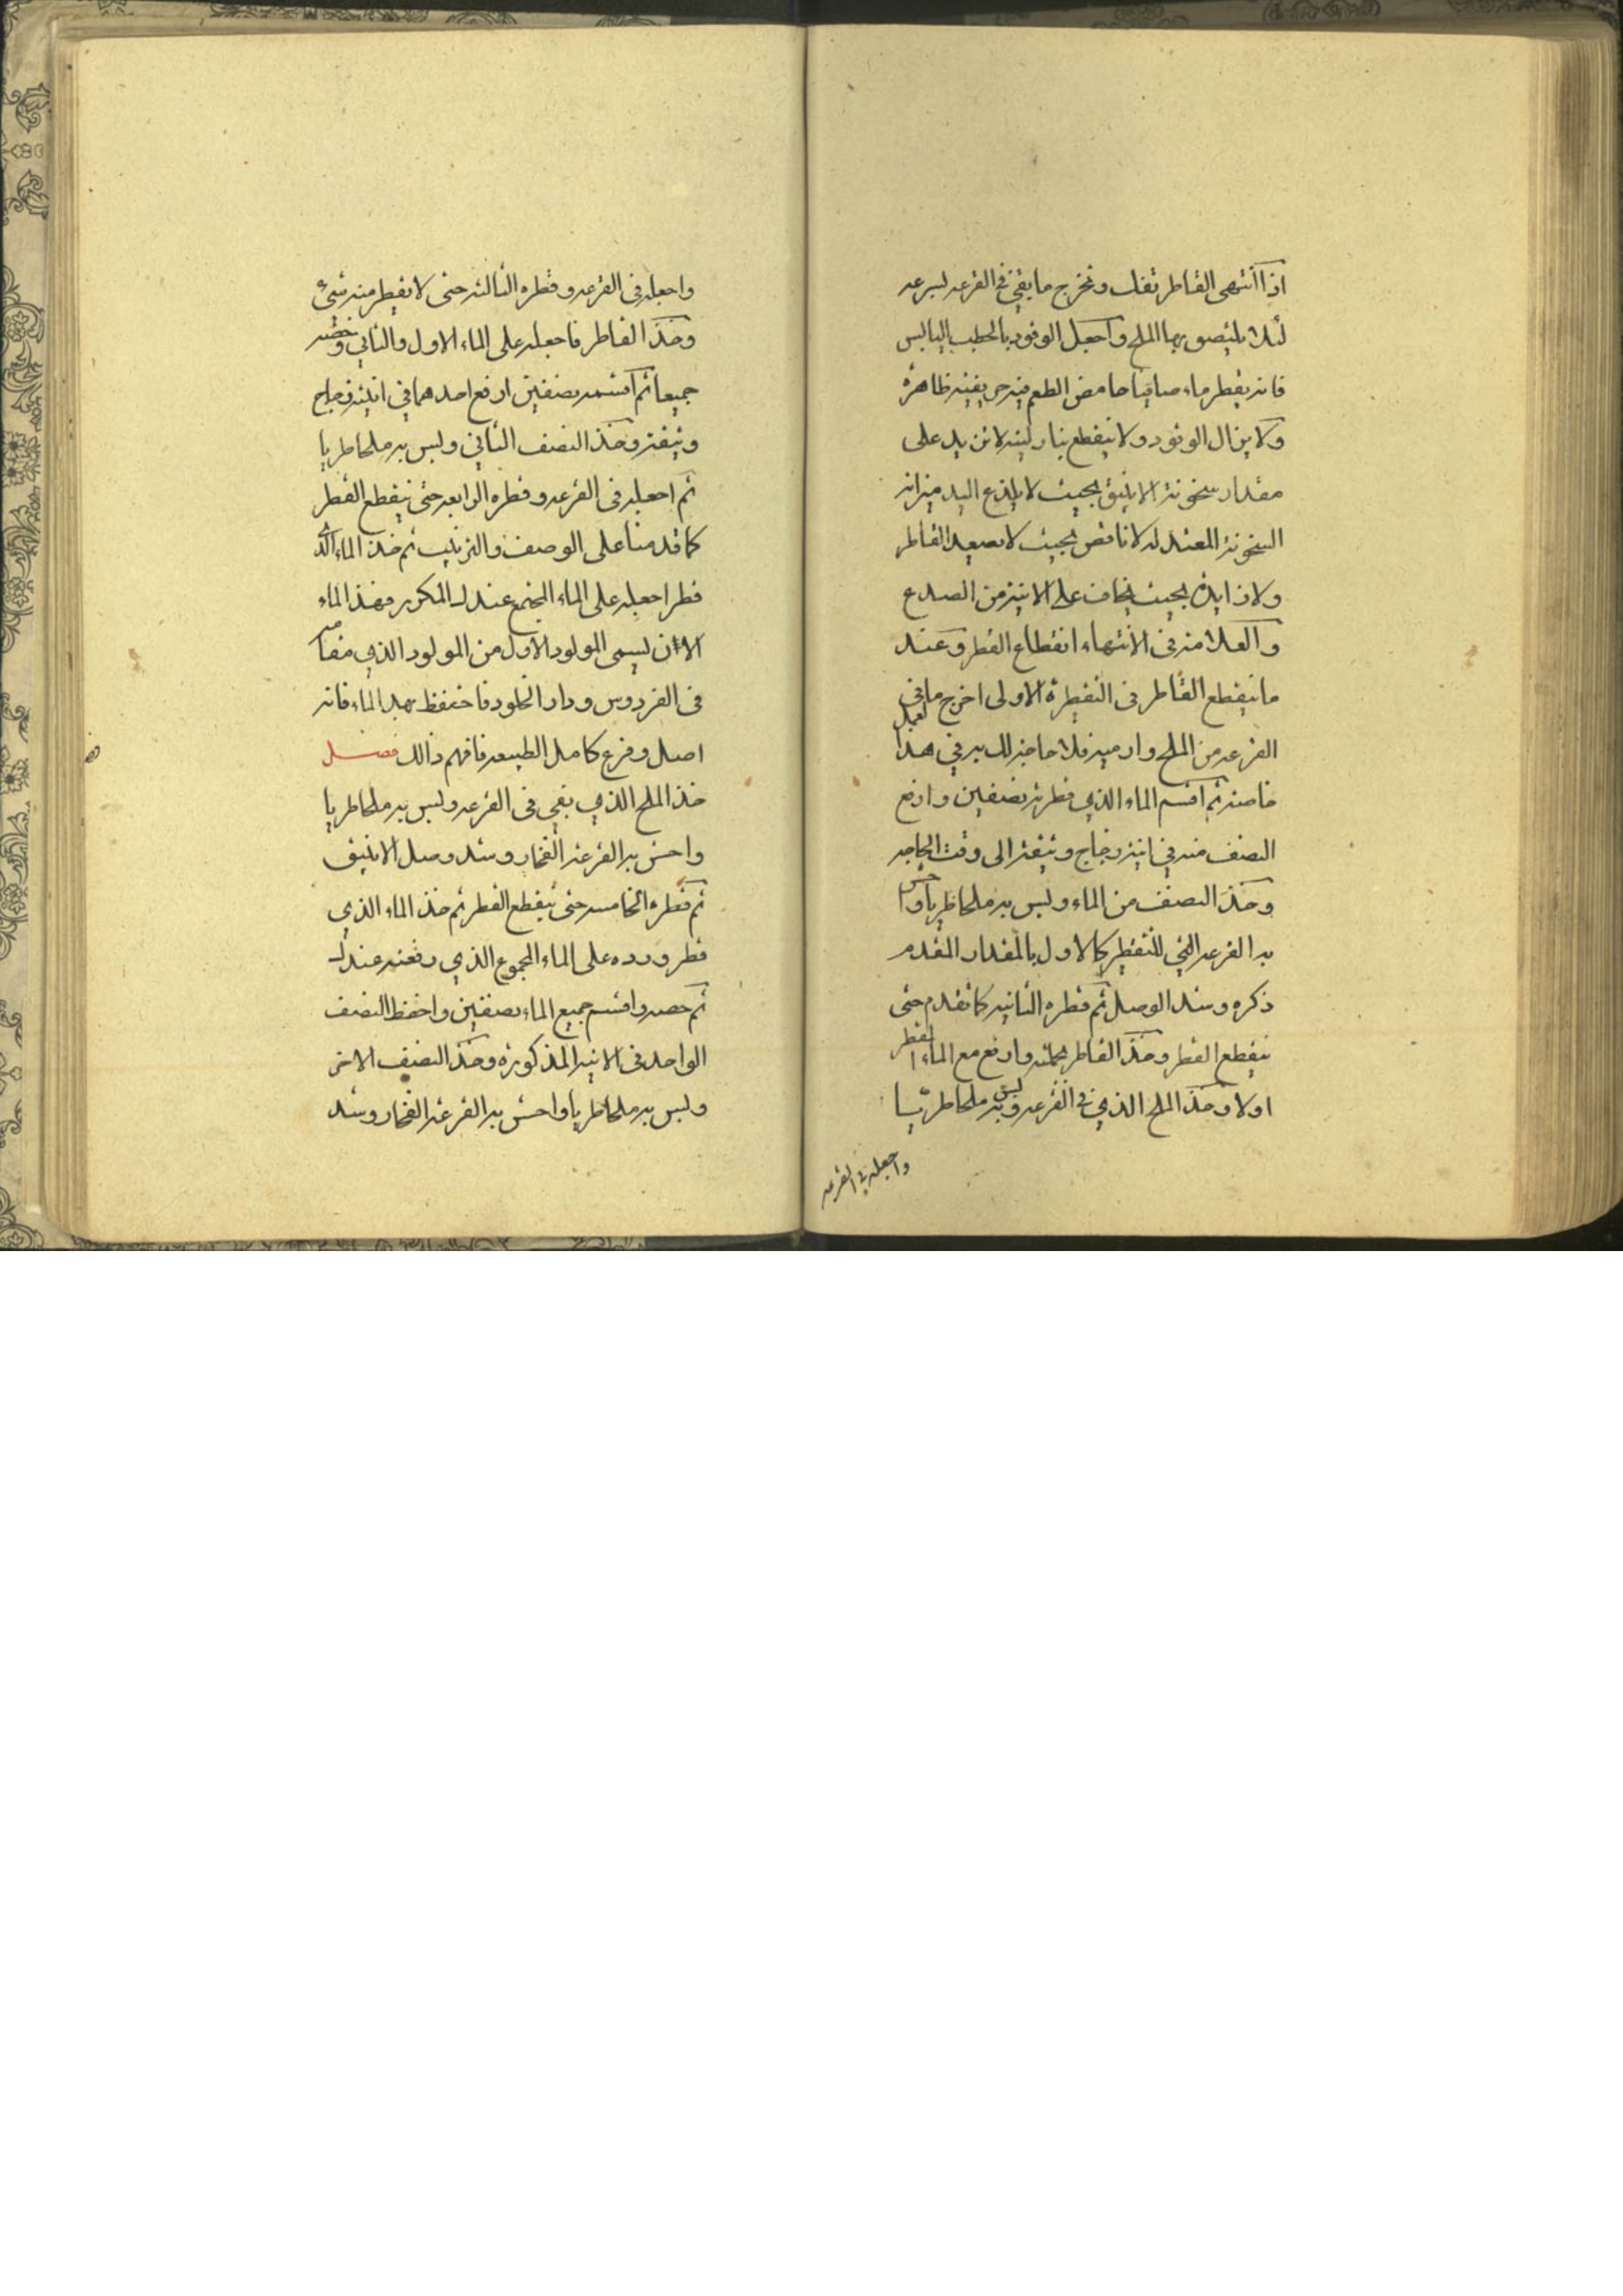 اذا انتهى القاطر تفك وتخرج ما بقي في القرعه لسرعه
لئلا يلتصق بها الملح واجعل الوقود بالحطب اليابس
فانه يقطر ماء صافيا حامض الطعم فيه ظاهرة
ولا يزال الوقود ولا ينقطع بنار لينه لا تزيد على
مقدار سخونة الانبيق بحيث لا يلذع اليد ميزانه
السخونة المعتدله لا ناقص بحيث لا يصعد القاطر
ولا زايدة بحيث يخاف على الانية من الصدع
والعلامة في الانتهاء انقطاع القطر وعند
ما ينقطع القاطر في التقطرة الاولى اخرج ما في
القرعه من الملح وارميه فلا حاجة لك به في هدا العمل
خاصة ثم اقسم الماء الذي قطرته نصفين وارفع
النصف منه في انية زجاج وثيقة الى وقت الحاجه
وخذ النصف من الماء ولبس به ملحا طريا واحش
به القرعه التي للتقطير كالاول بالمقدار المقدم
ذكره وشد الوصل ثم قطره الثانيه كما تقدم حتى
ينقطع القطر وخذ القاطر بجملته وارفع مع الماء القطر
اولا وخذ الملح الذي في القرعه ولبس به ملحا طريا
واجعله في القرعه
واجعله في القرعه وقطره الثالثه حتى لا يقطر منه شئ
وخذ القاطر فاجعله على الماء الاول والثاني وخضه
جميعا ثم اقسمه نصفين ارفع احدهما في انية زجاج
وثيقة وخذ النصف الثاني ولبس به ملحا طريا
ثم اجعله في القرعه وقطره الرابعه حتى ينقطع القطر
كما قدمنا على الوصف والترتيب ثم خذ الماء الذي
قطر اجعله على الماء المجتمع عندك المكرر فهذا الماء
الاان يسمى المولود الاول من المولود الذي مقامه
في الفردوس ودار الخلود فاحتفظ بهدا الماء فانه
اصل وفرع كامل الطبيعه فافهم ذالك فصل
خذ الملح الذي بقي في القرعه ولبس به ملحا طريا
واحش به القرعة الفخار وشد وصل الانبيق
ثم قطره الخامسه حتى ينقطع القطر ثم خذ الماء الذي
قطر ورده على الماء المجموع الذي رفعته عندك
ثم خضه واقسم جميع الماء نصفين واحفظ النصف
الواحد في الانيه المذكورة وخذ النصف الاخر
ولبس به ملحا طريا واحش به القرعة الفخار وشد